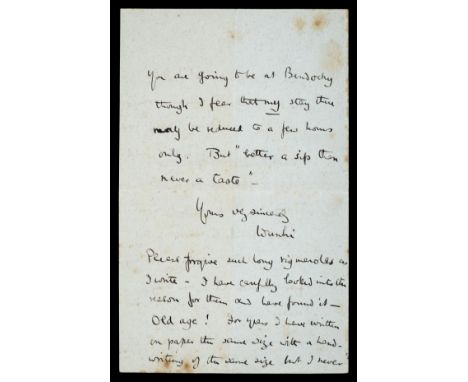 You are going to be at Bendochy
though I fear that my stay there
may be reduced to a few hours
only. But "better a sip than
never a taste" -
Yours vy sincerely
Please forgive such long rigmaroles as
I write - I have carefully looked into the
reason for them and have found it -
Old age! For years I have written
on paper the same size with a hand-
writing of the same size but I never